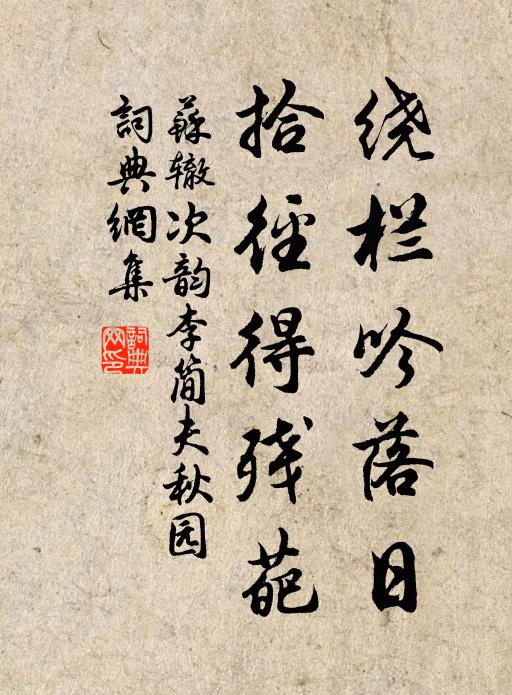 绕栏吟落日
拾径得残葩
蘇辙次韵李简夫秋园
詞典網集
詞典
网印